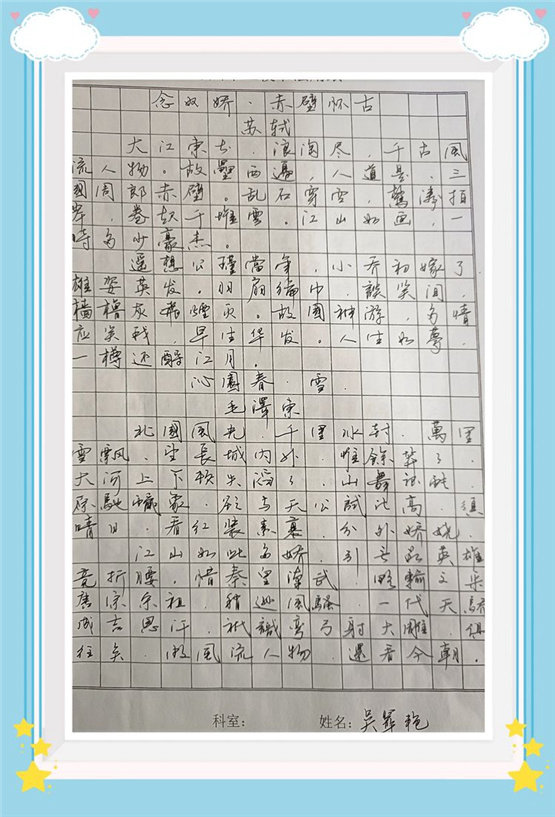 念奴娇·赤壁怀古
苏轼
大江東去.浪淘尽,千古風
流人物。故壘西邊,人道是.三
國周郎赤壁。乱石穿空,驚濤拍
岸,卷起千堆雪。江山如画,一
時多少豪杰。
遥想公瑾當年,小乔初嫁了
雄姿英发。羽扇綸巾.談笑间,
檣櫓灰飛煙灭。故國神游,多情
应笑我,早生华发。人生如夢.
一樽还酹江月.
沁園春·雪.
毛澤東
北國風光.千里冰封.萬里
雪飘.望長城内外.惟餘莽了.
大河上下頓失滔了.山舞銀蛇
原馳蠟象.欲与天公試比高.須
晴日.看红装素裹.分外娇娆.
江山如此多娇.引无数英雄
竞折腰.惜秦皇漢武.略輸文采
唐宗宋祖.稍逊風騷.一代天驕
成吉思汗.衹識弯弓射大雕.俱
往矣.数風流人物.還看今朝.
科室: 姓名:吴翠艳